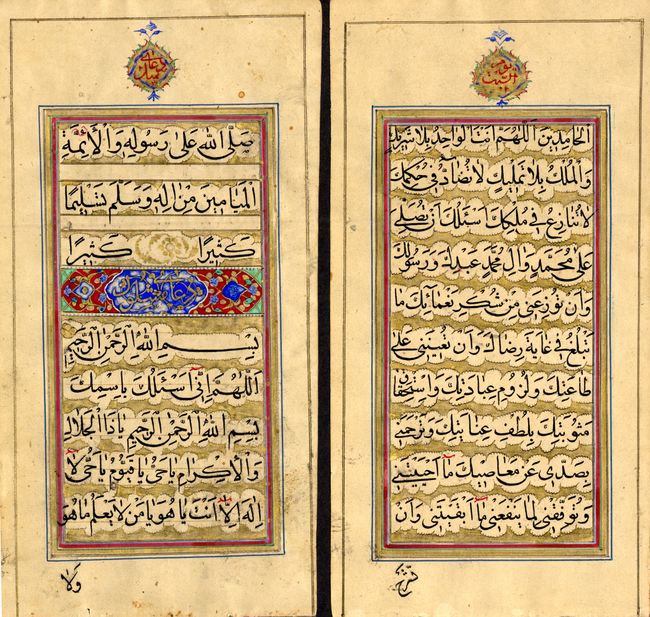 يوم السبت
الحامدين اللهم انت الواحد بلا شريك
والملك بلا تمليك لا تضاد في حكمك
لا تنازع في ملكك اسئلك ان تصلي
على محمد وال محمد عبدك ورسولك
وان توزعني من شكر نعمائك ما
تبلغ في غاية رضاك وان تعينني على
طاعتك ولزوم عبادتك واستحقاق
مثوبتك بلطف عنايتك وترحمني
بصدي عن معاصيك ما احييتني
وتوفقني لما ينفعني ما ابقيتني وان
تشرح
صَلَّى اللهُ عَلىٰ رَسُولِهِ وَالأَئِمَّةِ
المَيَامِينَ مِنْ الِهِ وَسَلَّمَ تَسْلِيمًا
كَثِيرًا كَثِيرًا
دعای مشلول
بِسْمِ اللهِ الرَّحْمٰنِ الرَّحِيمِ
اَللّٰهُمَّ اِنّي اَسْئَلُكَ بِاسْمِكَ
بِسْمِ اللهِ الرَّحْمٰنِ الرَّحِيمِ يَا ذَا الْجَلَالِ
وَالْاِكْرَامِ يَا حَيُّ يَا قَيُّومُ يَا حَيُّ لَا
اِلٰهَ اِلَّا اَنْتَ يَا هُوَ يَا مَنْ لَا يَعْلَمُ مَا هُوَ
وَلَا